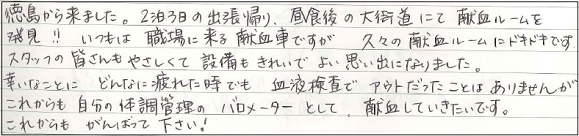 徳島から来ました。2泊3日の出張帰り、昼食後の大街道にて献血ルームを
発見!! いつもは職場に来る献血車ですが 久々の献血ルームにドキドキです
スタッフの皆さんもやさしくて設備もきれいでよい思い出になりました。
幸いなことに どんなに疲れた時でも 血液検査でアウトだったことはありませんが
これからも自分の体調管理のバロメーターとして、献血していきたいです。
これからも がんばって下さい!